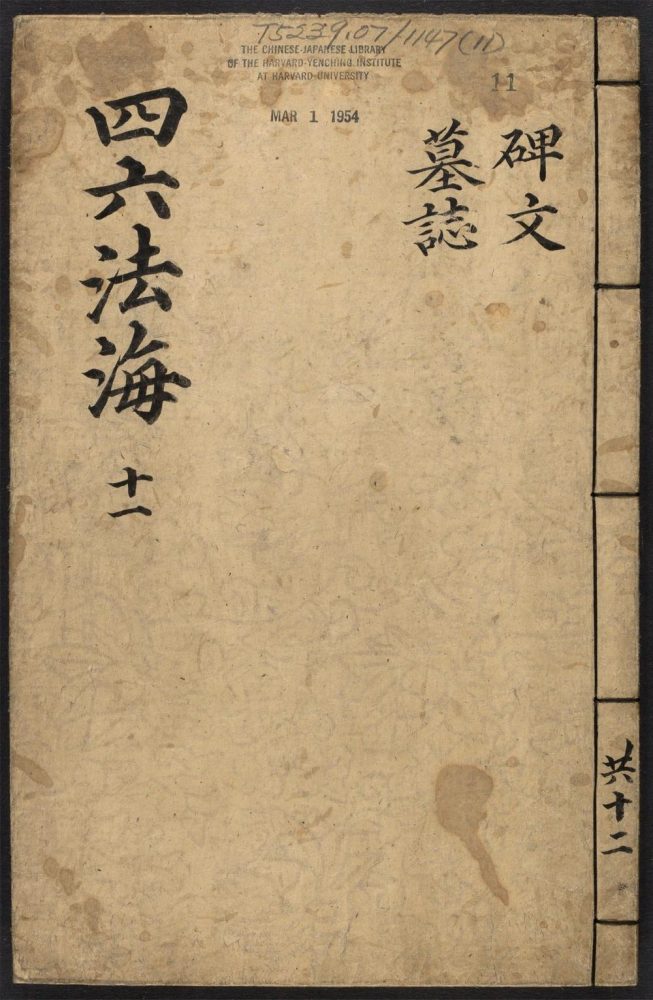 T5239.07/1147(11)
THE CHINESE-JAPANESE LIBRARY
OF THE HARVARD-YENCHING INSTITUTE
AT HARVARD UNIVERSITY
MAR 1 1954
11
碑文
墓誌
四六法海 十一
共十二